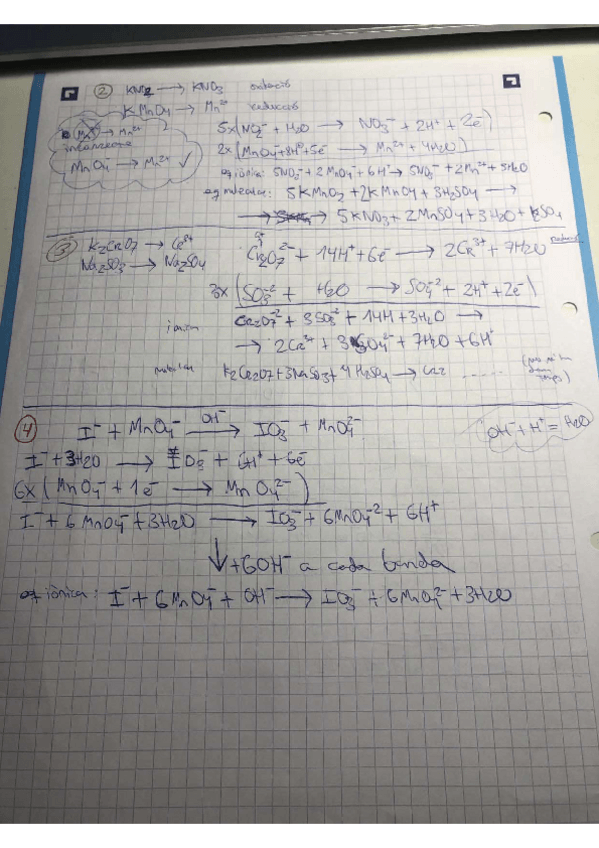 ② KNO2 → KNO3 oxidació
KMnO4 → Mn2+ reducció
Mn7+ → Mn2+
MnO4- → Mn2+ ✓
5x(NO2- + H2O → NO3- + 2H+ + 2e-)
2x(MnO4- + 8H+ + 5e- → Mn2+ + 4H2O)
eq iònica: 5NO2- + 2MnO4- + 6H+ → 5NO3- + 2Mn2+ + 3H2O
eq molecular: 5KMnO2 + 2KMnO4 + 3H2SO4 →
→ 5KNO3 + 2MnSO4 + 3H2O + K2SO4
③ K2Cr2O7 → Cr3+
Na2SO3 → Na2SO4
Cr2O7 2- + 14H+ + 6e- → 2Cr3+ + 7H2O
3x(SO3-2 + H2O → SO4-2 + 2H+ + 2e-)
iònica Cr2O7-2 + 3SO3-2 + 14H + 3H2O →
→ 2Cr3+ + 3SO4 2- + 7H2O + 6H+
molecular K2Cr2O7 + 3Na2SO3 + 4H2SO4 → Cr2 ......
④ I- + MnO4- OH-→ IO3- + MnO4 2-
OH- + H+ = H2O
I- + 3H2O → IO3- + 6H+ + 6e-
6x(MnO4- + 1e- → MnO4 2-)
I- + 6MnO4- + 3H2O → IO3- + 6MnO4-2 + 6H+
↓ +6OH- a cada banda
eq iònica: I- + 6MnO4- + OH- → IO3- + 6MnO4 2- + 3H2O